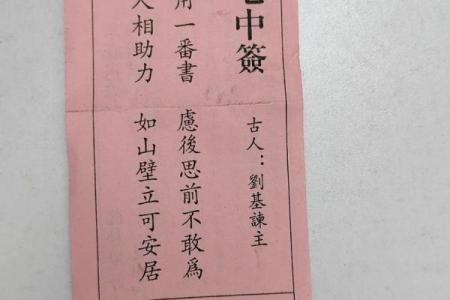 中簽
古人：劉基諫主
用一番書 慮後思前不敢為
人相助力 如山壁立可安居